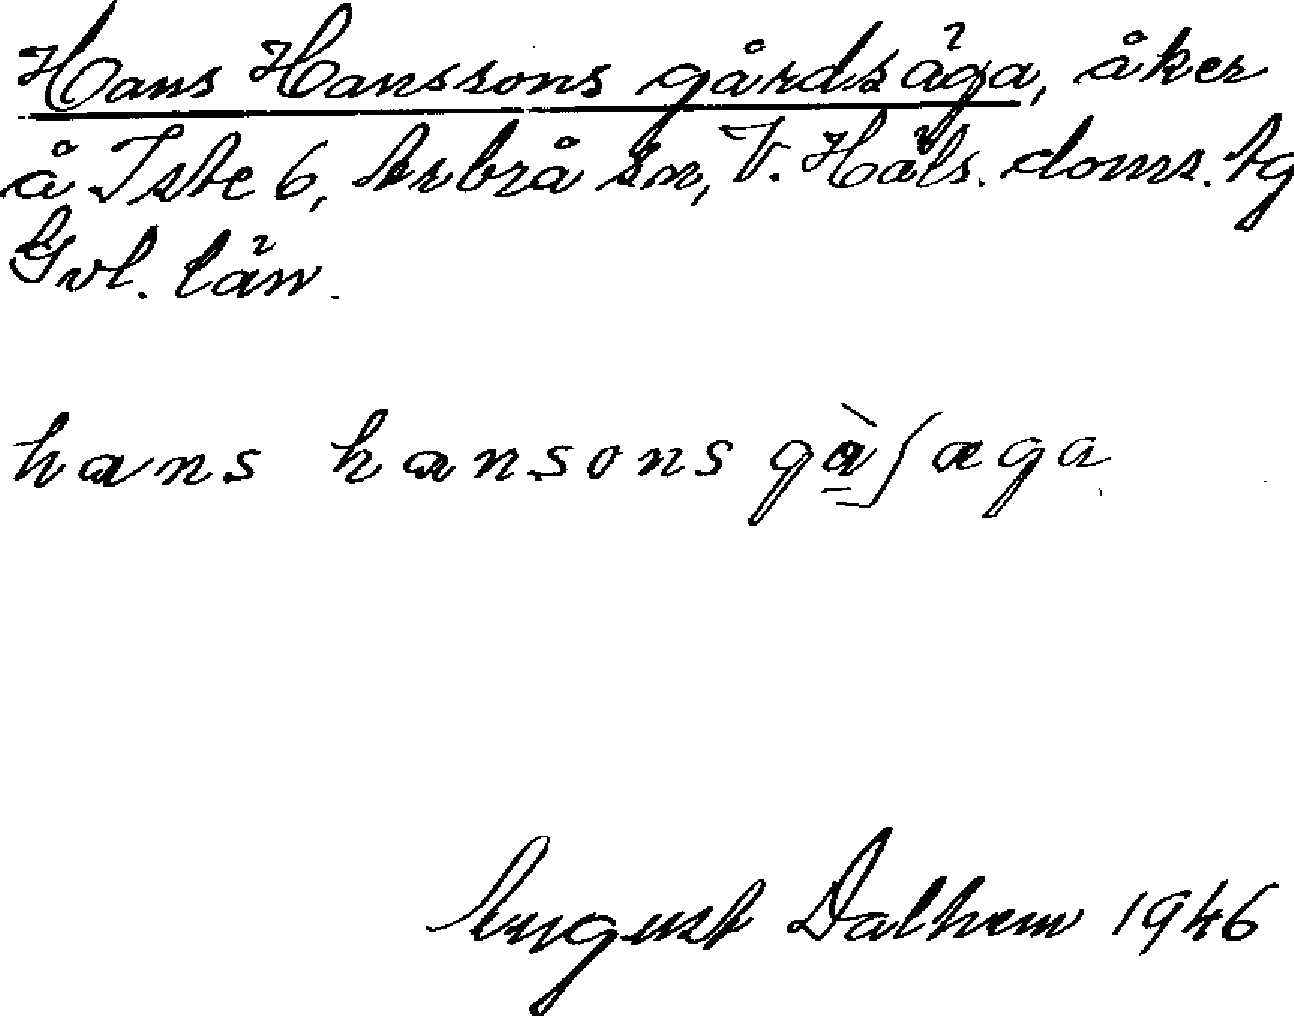 Hans Hanssons gårdsäga, åker
å Iste 6, Arbrå sn, V. Häls. doms. tg
Gvl. län.
hans hansons gàʃaga
August Dalhem 1946